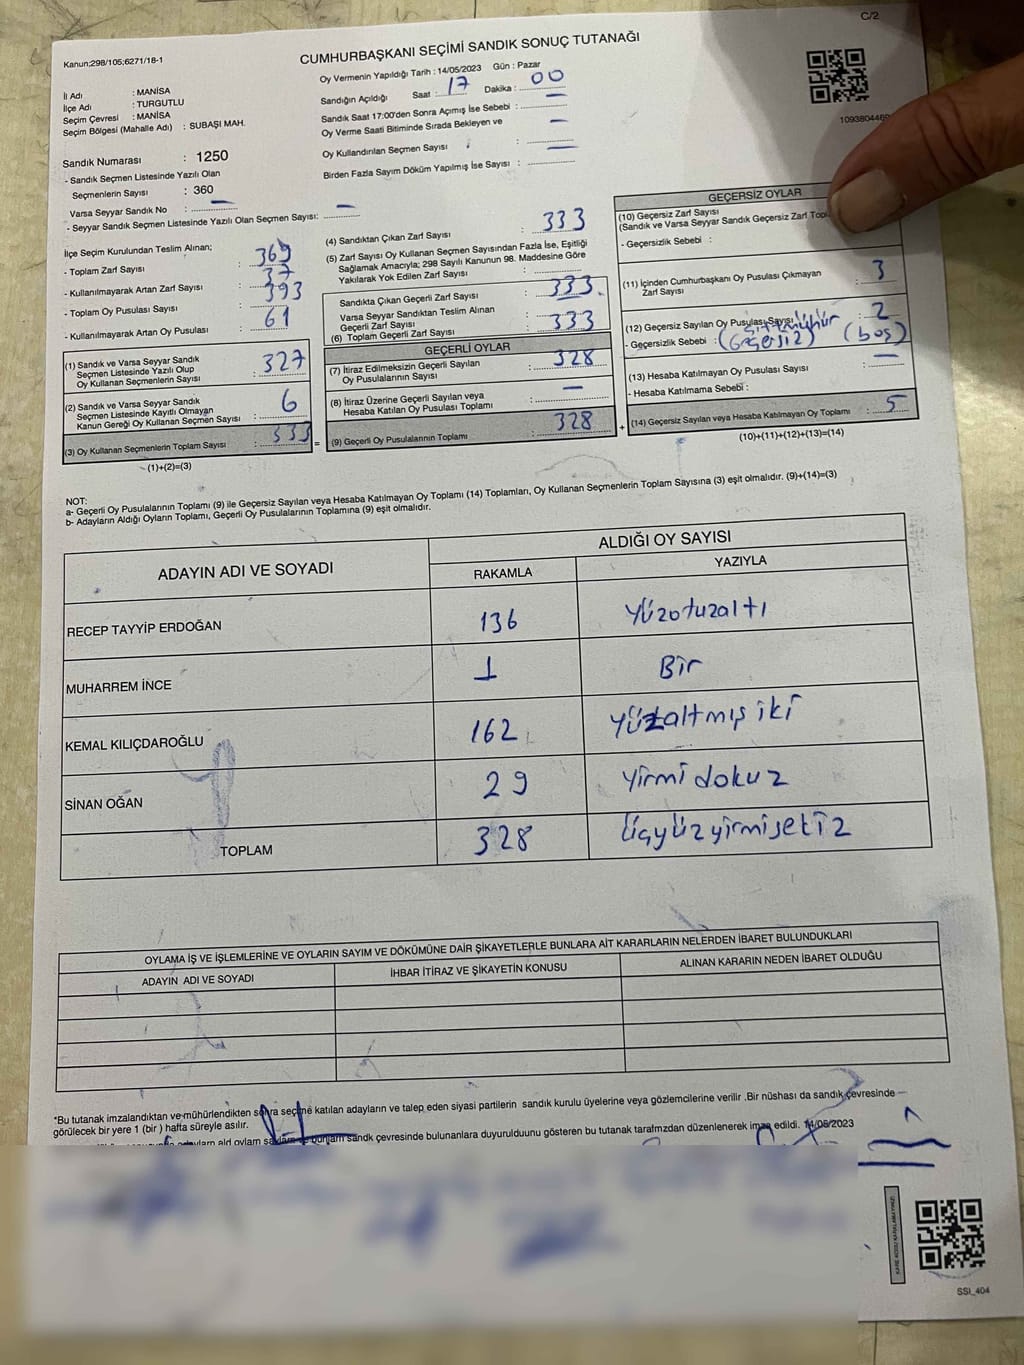 C/2
Kanun;298/105;6271/18-1
CUMHURBAŞKANI SEÇİMİ SANDIK SONUÇ TUTANAĞI
Oy Vermenin Yapıldığı Tarih : 14/05/2023 Gün : Pazar
İl Adı : MANİSA
İlçe Adı : TURGUTLU
Seçim Çevresi : MANİSA
Seçim Bölgesi (Mahalle Adı) : SUBAŞI MAH.
Sandığın Açıldığı Saat : 17 Dakika : 00
Sandık Saat 17:00'den Sonra Açımış İse Sebebi : —
Oy Verme Saati Bitiminde Sırada Bekleyen ve
Oy Kullandırılan Seçmen Sayısı : —
Birden Fazla Sayım Döküm Yapılmış İse Sayısı : —
Sandık Numarası : 1250
- Sandık Seçmen Listesinde Yazılı Olan
Seçmenlerin Sayısı : 360
Varsa Seyyar Sandık No : —
- Seyyar Sandık Seçmen Listesinde Yazılı Olan Seçmen Sayısı: —
İlçe Seçim Kurulundan Teslim Alınan;
- Toplam Zarf Sayısı : 369
- Kullanılmayarak Artan Zarf Sayısı : 37
- Toplam Oy Pusulası Sayısı : 393
- Kullanılmayarak Artan Oy Pusulası : 61
(1) Sandık ve Varsa Seyyar Sandık
Seçmen Listesinde Yazılı Olup
Oy Kullanan Seçmenlerin Sayısı : 327
(2) Sandık ve Varsa Seyyar Sandık
Seçmen Listesinde Kayıtlı Olmayan
Kanun Gereği Oy Kullanan Seçmen Sayısı : 6
(3) Oy Kullanan Seçmenlerin Toplam Sayısı : 333 =
(1)+(2)=(3)
(4) Sandıktan Çıkan Zarf Sayısı : 333
(5) Zarf Sayısı Oy Kullanan Seçmen Sayısından Fazla İse, Eşitliği
Sağlamak Amacıyla; 298 Sayılı Kanunun 98. Maddesine Göre
Yakılarak Yok Edilen Zarf Sayısı :
Sandıkta Çıkan Geçerli Zarf Sayısı : 333
Varsa Seyyar Sandıktan Teslim Alınan
Geçerli Zarf Sayısı :
(6) Toplam Geçerli Zarf Sayısı 333
GEÇERLİ OYLAR
(7) İtiraz Edilmeksizin Geçerli Sayılan
Oy Pusulalarının Sayısı : 328
(8) İtiraz Üzerine Geçerli Sayılan veya
Hesaba Katılan Oy Pusulası Toplamı : —
(9) Geçerli Oy Pusulalarının Toplamı : 328 +
GEÇERSİZ OYLAR
(10) Geçersiz Zarf Sayısı
(Sandık ve Varsa Seyyar Sandık Geçersiz Zarf
- Geçersizlik Sebebi :
(11) İçinden Cumhurbaşkanı Oy Pusulası Çıkmayan
Zarf Sayısı : 3
(12) Geçersiz Sayılan Oy Pusulası Sayısı : 2
- Geçersizlik Sebebi : (Geçersiz) (boş)
(13) Hesaba Katılmayan Oy Pusulası Sayısı : —
- Hesaba Katılmama Sebebi :
(14) Geçersiz Sayılan veya Hesaba Katılmayan Oy Toplamı : 5
(10)+(11)+(12)+(13)=(14)
NOT:
a- Geçerli Oy Pusulalarının Toplamı (9) ile Geçersiz Sayılan veya Hesaba Katılmayan Oy Toplamı (14) Toplamları, Oy Kullanan Seçmenlerin Toplam Sayısına (3) eşit olmalıdır. (9)+(14)=(3)
b- Adayların Aldığı Oyların Toplamı, Geçerli Oy Pusulalarının Toplamına (9) eşit olmalıdır.
ADAYIN ADI VE SOYADI ALDIĞI OY SAYISI
RAKAMLA YAZIYLA
RECEP TAYYİP ERDOĞAN 136 Yüzotuzaltı
MUHARREM İNCE 1 Bir
KEMAL KILIÇDAROĞLU 162 Yüzaltmış iki
SİNAN OĞAN 29 Yirmi dokuz
TOPLAM 328 Üçyüzyirmisetiz
OYLAMA İŞ VE İŞLEMLERİNE VE OYLARIN SAYIM VE DÖKÜMÜNE DAİR ŞİKAYETLERLE BUNLARA AİT KARARLARIN NELERDEN İBARET BULUNDUKLARI
ADAYIN ADI VE SOYADI İHBAR İTİRAZ VE ŞİKAYETİN KONUSU ALINAN KARARIN NEDEN İBARET OLDUĞU
*Bu tutanak imzalandıktan ve mühürlendikten sonra seçime katılan adayların ve talep eden siyasi partilerin sandık kurulu üyelerine veya gözlemcilerine verilir .Bir nüshası da sandık çevresinde
görülecek bir yere 1 (bir ) hafta süreyle asılır.
sandk çevresinde bulunanlara duyurulduunu gösteren bu tutanak tarafmzdan düzenlenerek imza edildi. 14/05/2023
SSI_404